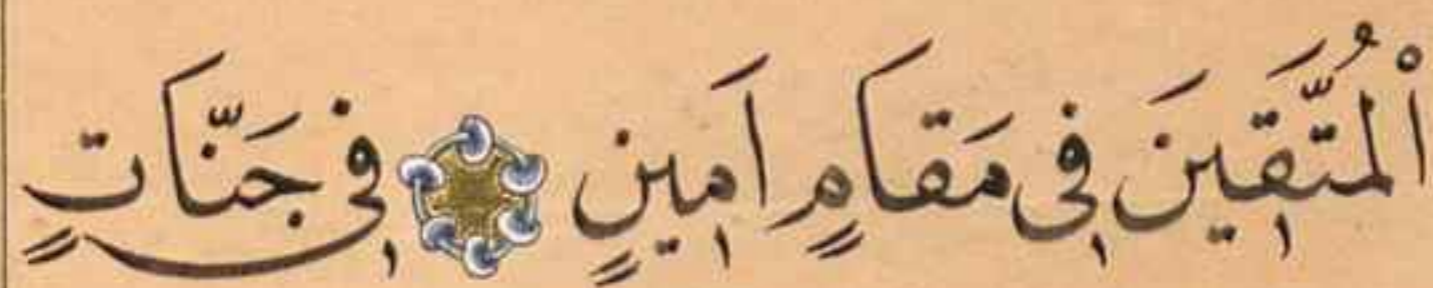 الْمُتَّقِينَ فِي مَقَامٍ اَمِينٍ فِي جَنَّاتٍ